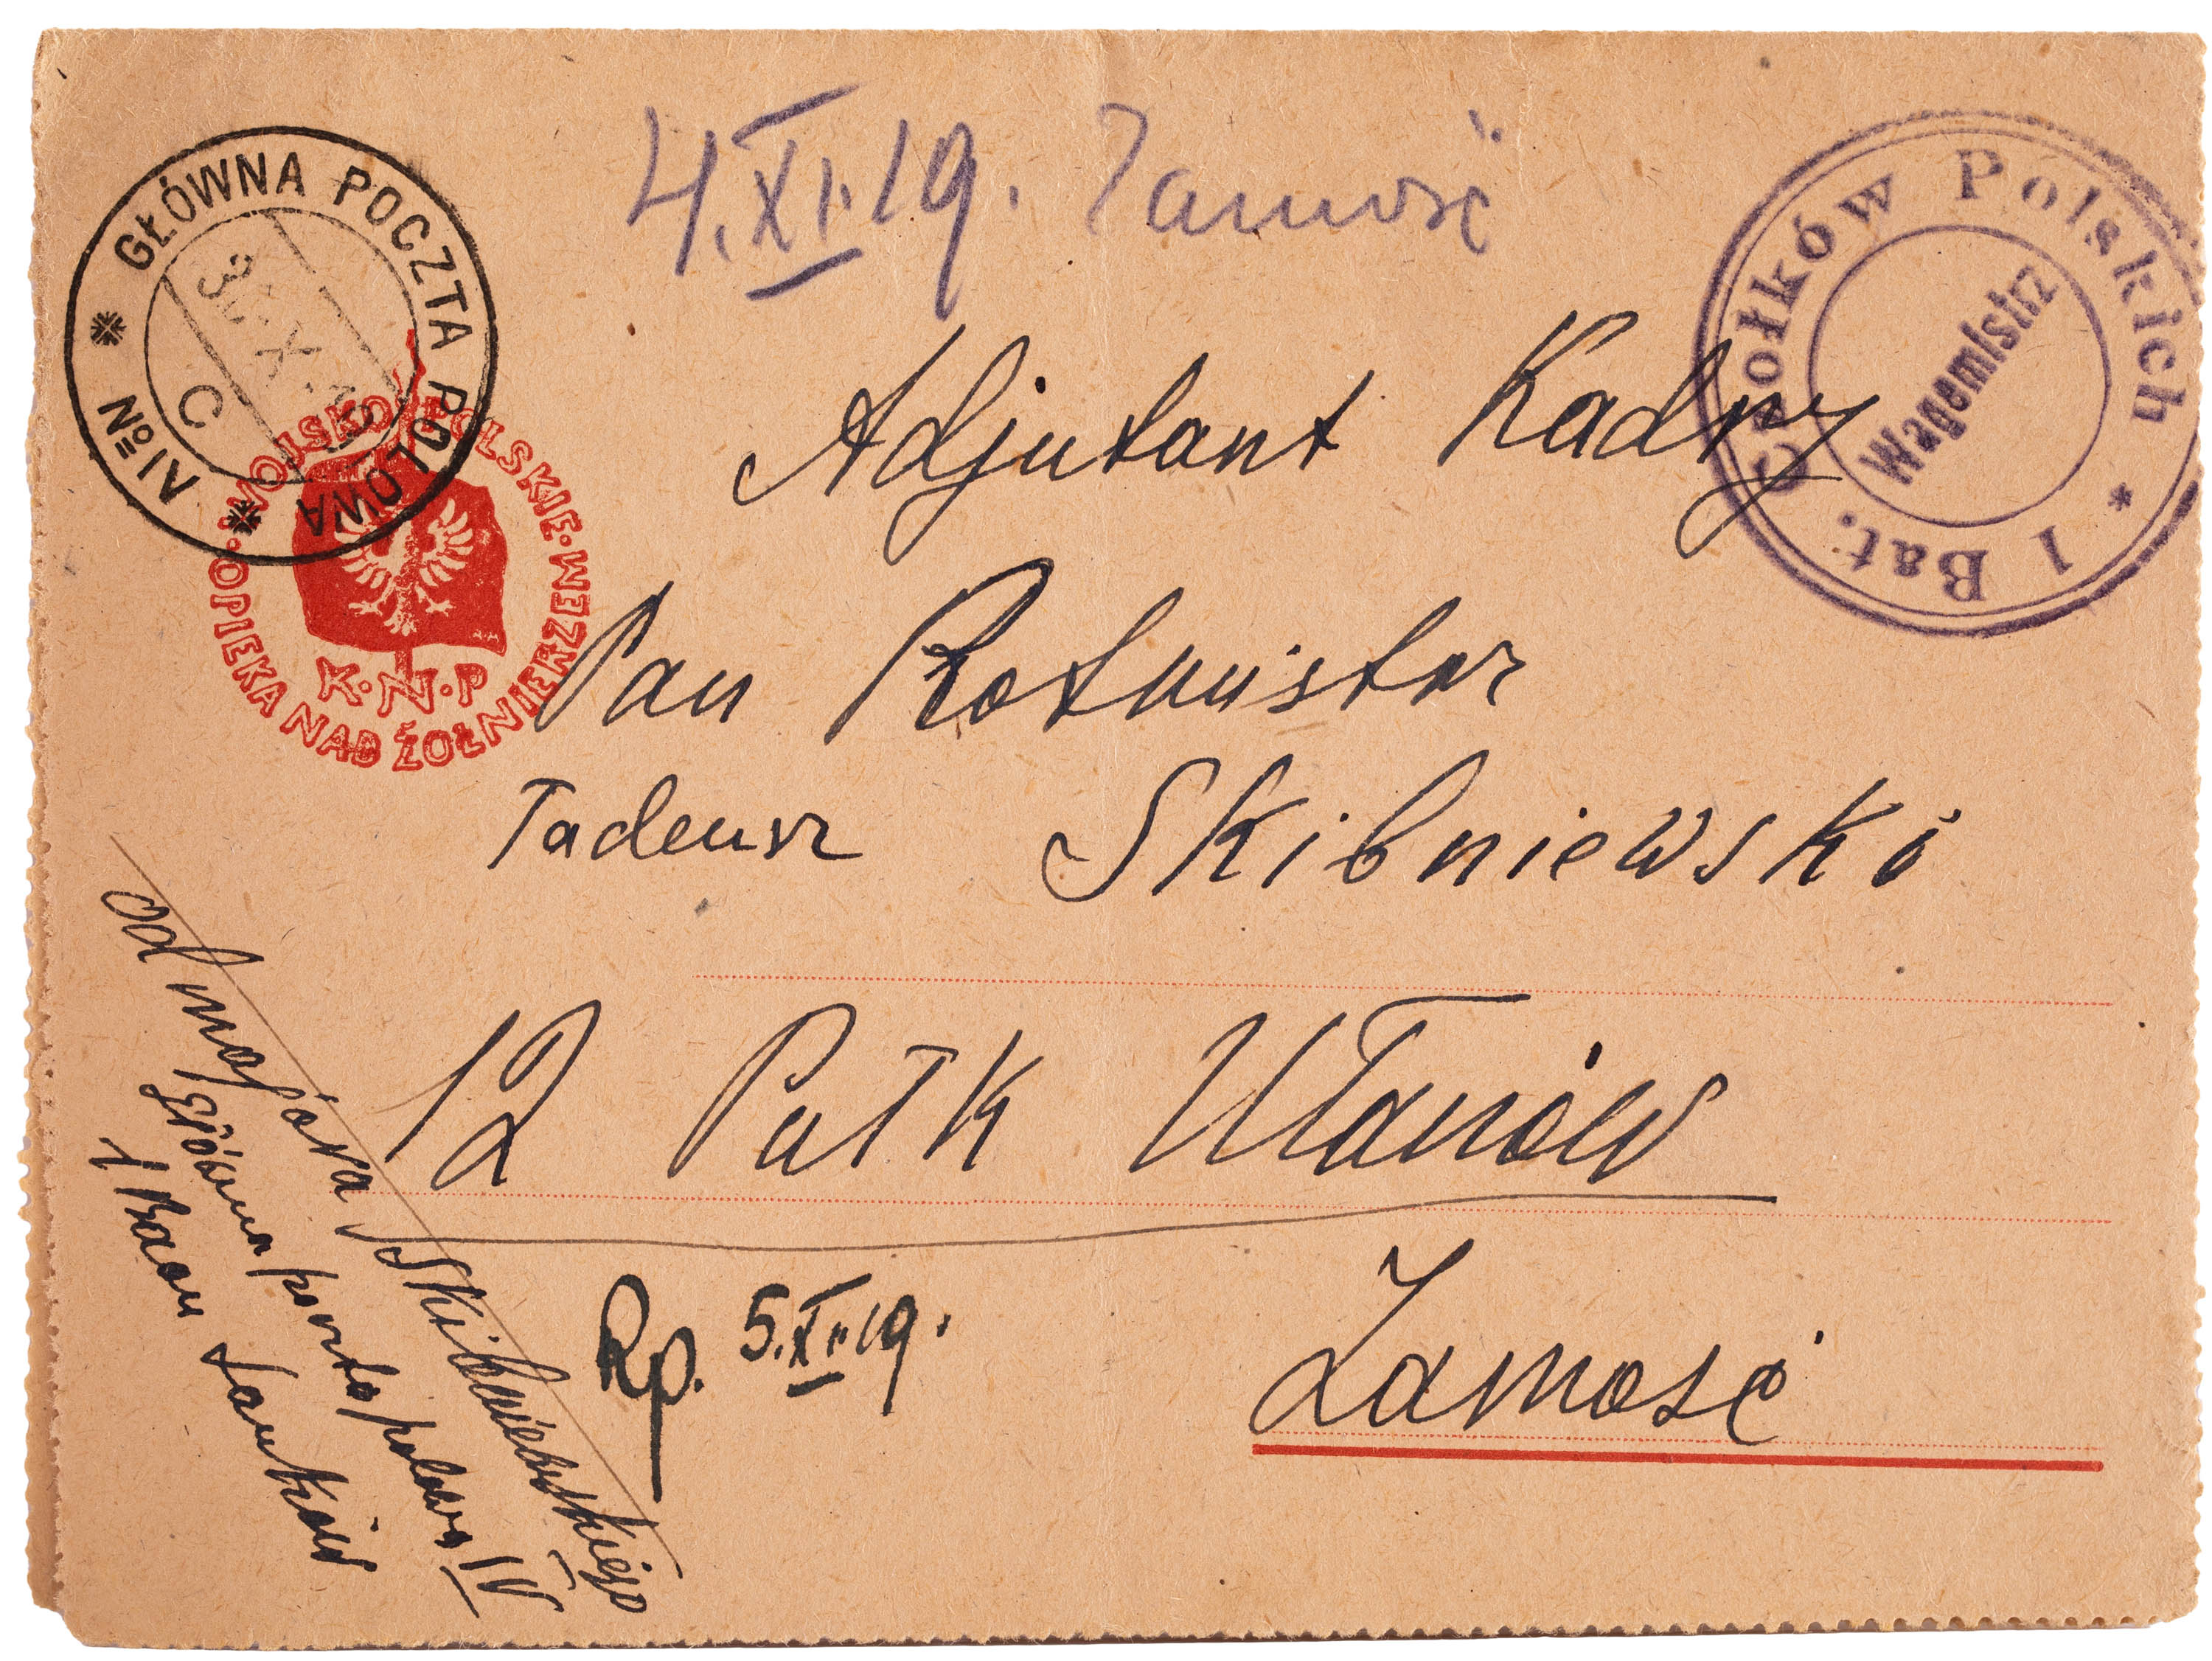 4.XI.19. Zamość
GŁÓWNA POCZTA POLOWA
№ IV
30.X.19
C
WOJSKO POLSKIE·MEZEM·
·OPIEKA NAD ŻOŁNIERZEM
K·N·P
1 Bat. Czołków Polskich *
Wagemistrz
Adjutant Kadry
Pan Rotmistrz
Tadeusz Skibniewski
12 Pułk Ułanów
Zamość
Rp. 5.XI.19.
od majora Skibniewskiego
główna poczta polowa IV
1 Baon tanków